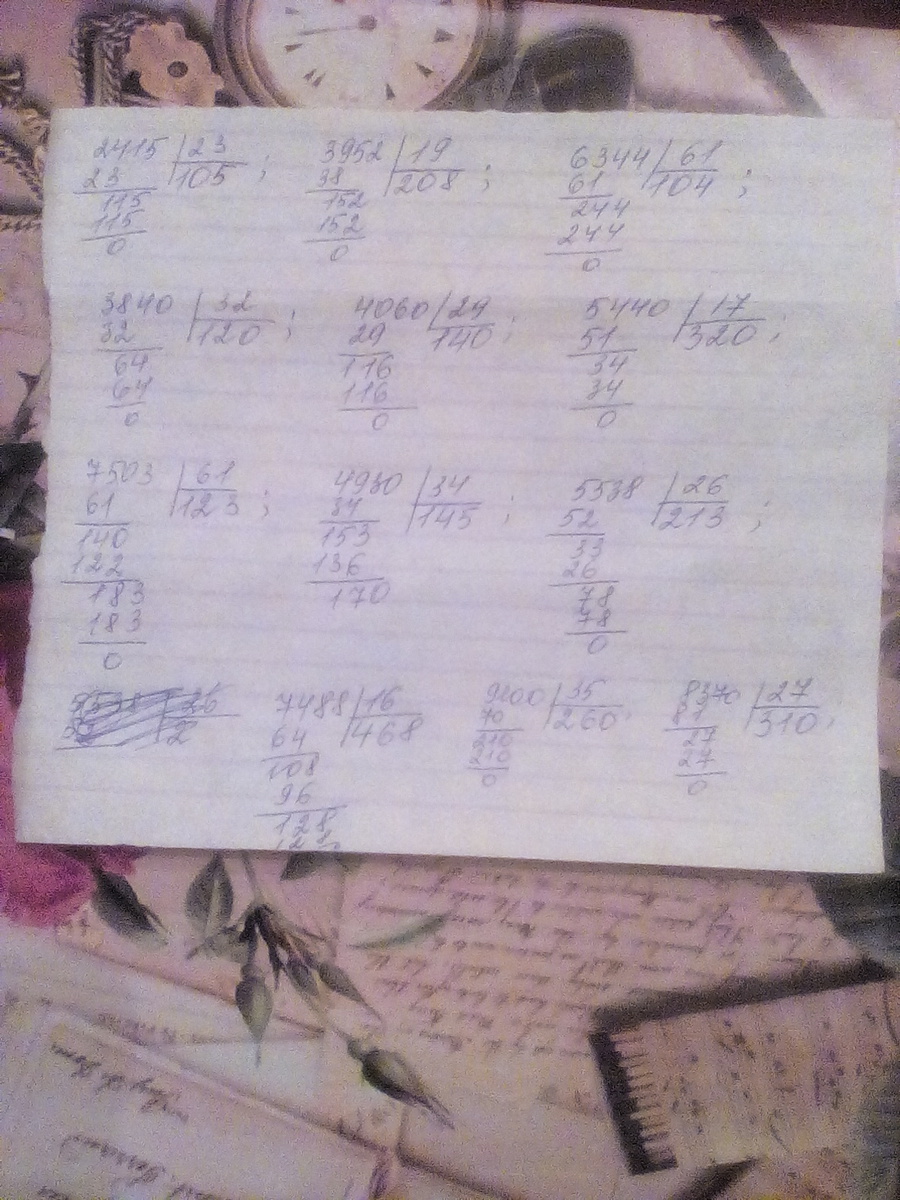 2415 | 23 3952 | 19 6344 | 61
23 105 ; 38 208 ; 61 104 ;
115 152 244
115 152 244
0 0 0
3840 | 32 4060 | 29 5440 | 17
32 120 ; 29 140 ; 51 320 ;
64 116 34
64 116 34
0 0 0
7503 | 61 4930 | 34 5538 | 26
61 123 ; 34 145 ; 52 213 ;
140 153 33
122 136 26
183 170 78
183 78
0 0
26 7488 | 16 9100 | 35 8370 | 27
2 64 468 70 260 ; 81 310 ;
108 210 27
96 210 27
128 0 0
128